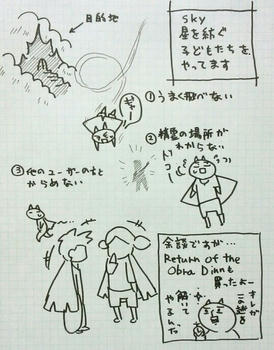 sky
星を紡ぐ
子どもたちを、
やってます
目的地
①うまく飛べない
ギャー
②精霊の場所が
わからない
ドコー
③他のユーザーのもと
からめない
余談ですが…
Return of the
Obra Dinnも
買ったよー
オレが
この謎を
解いて
やるんだ